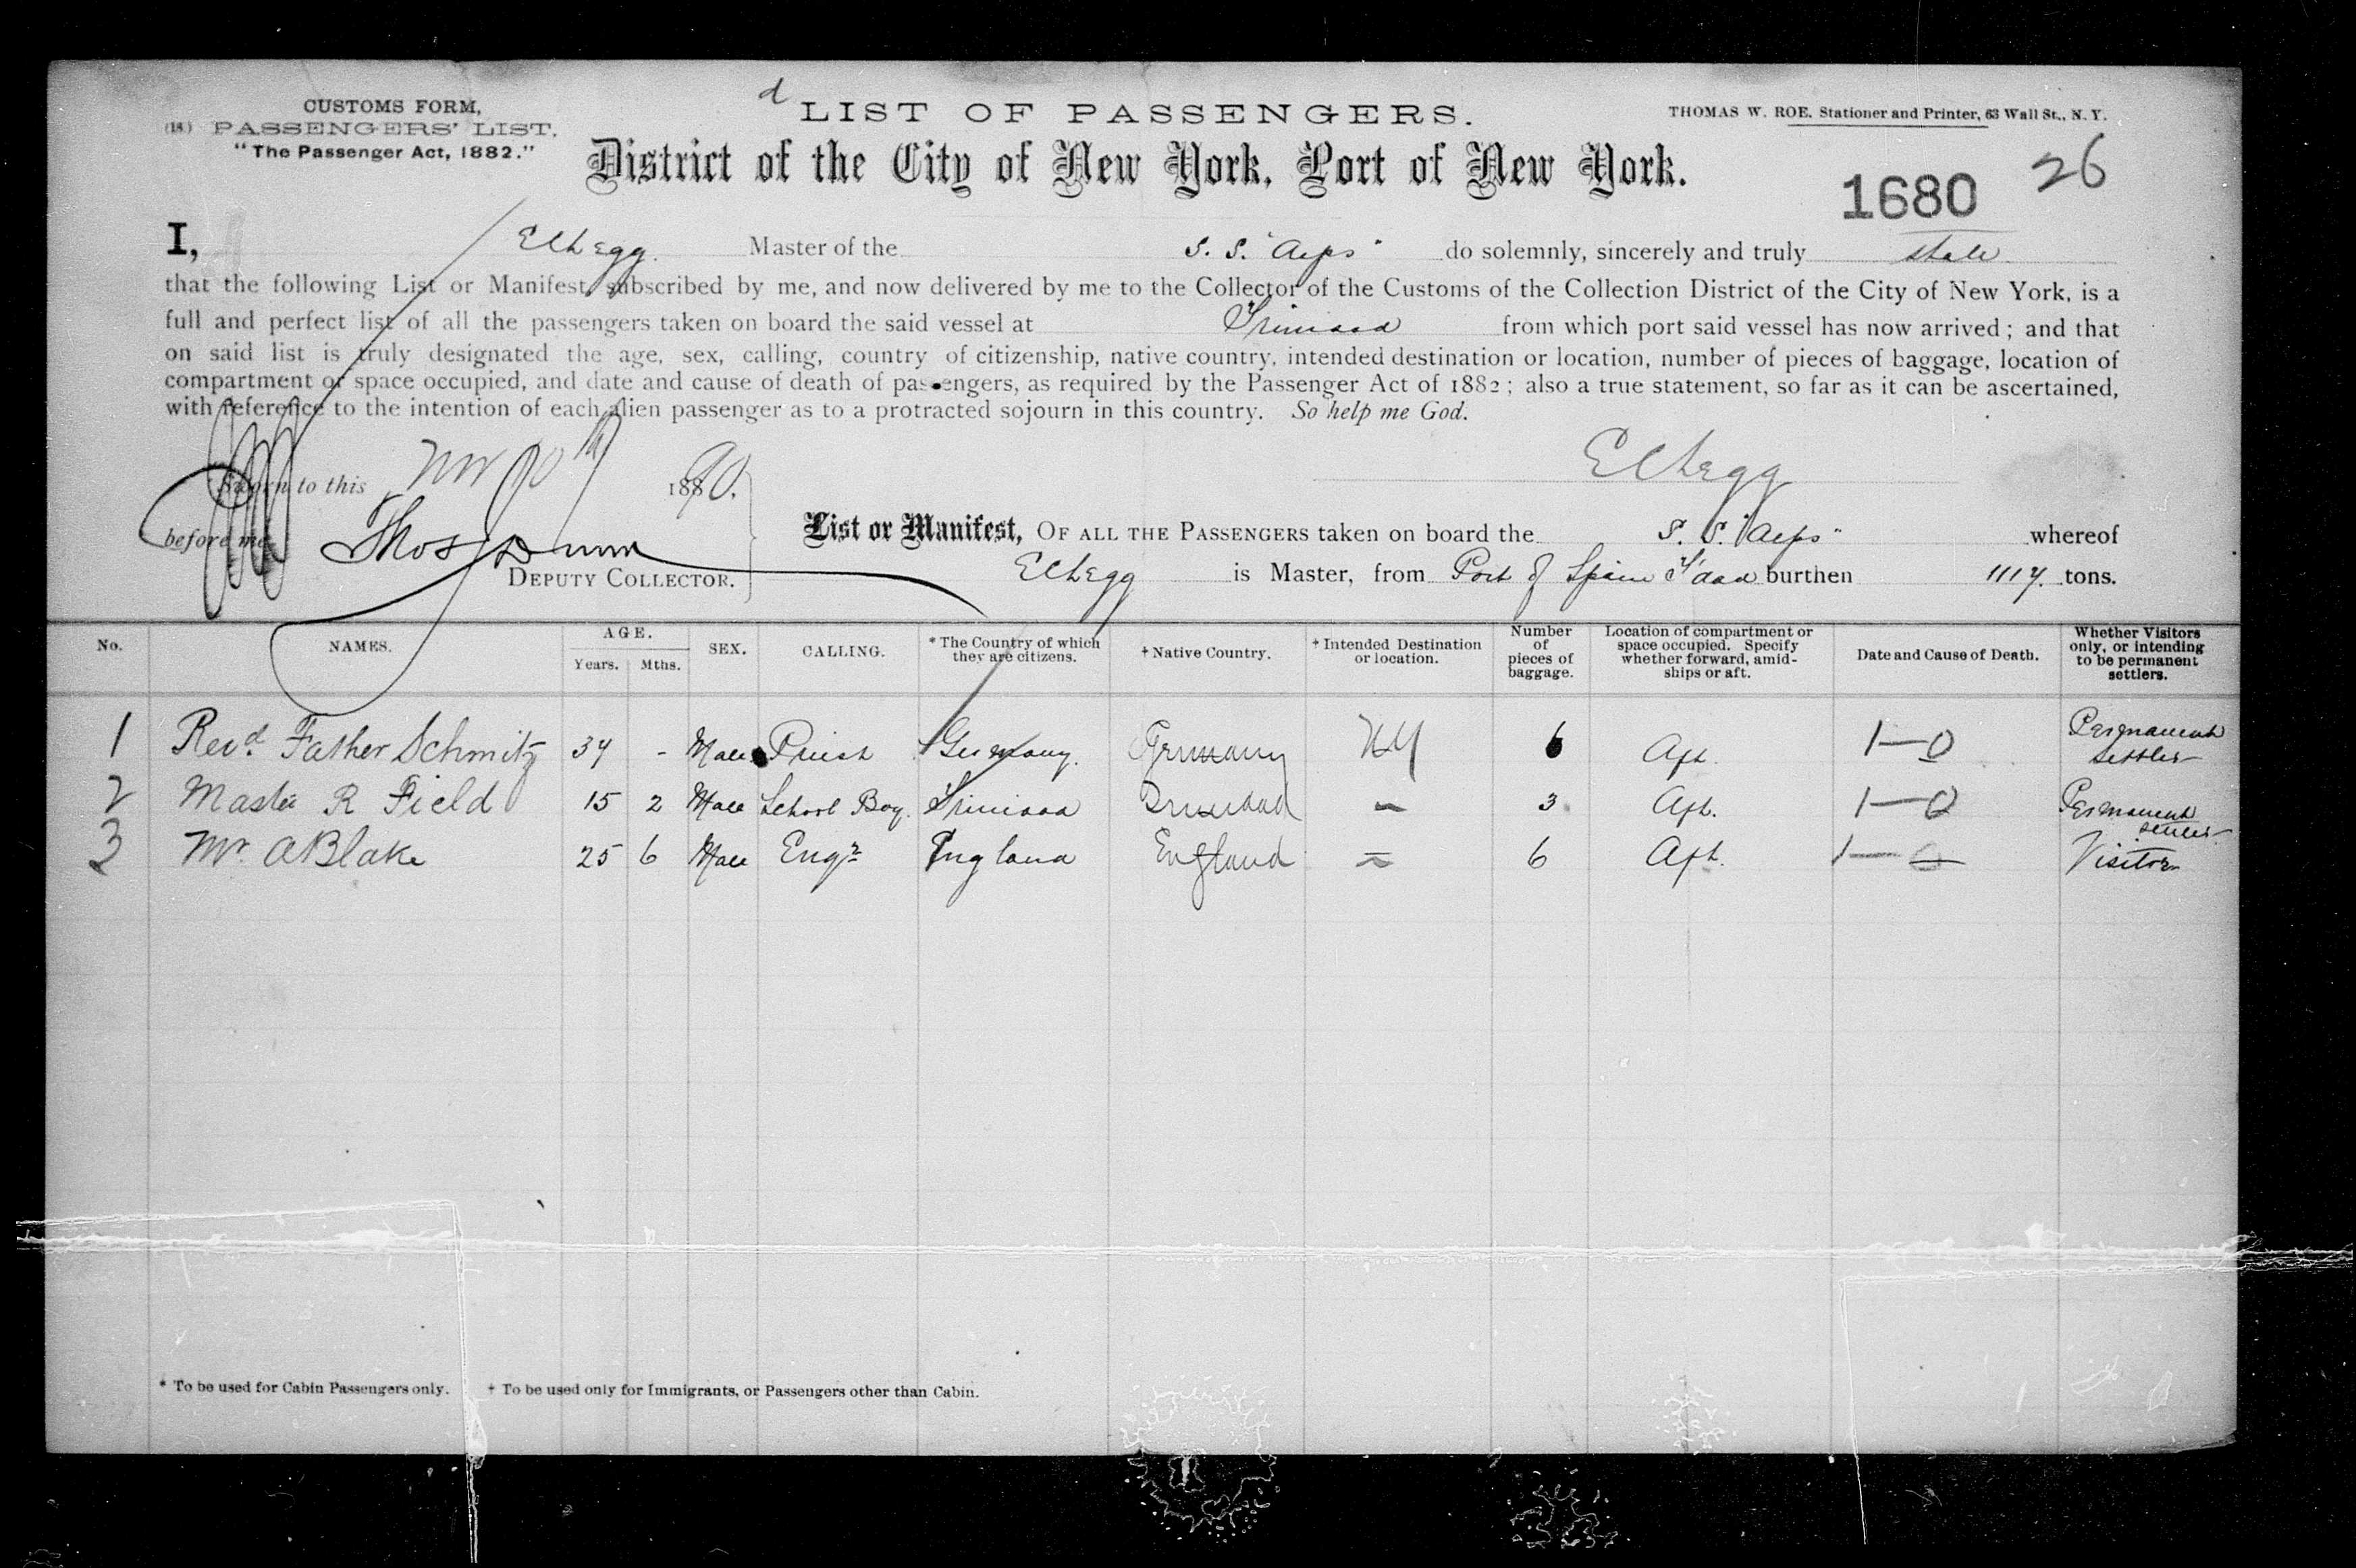 d
CUSTOMS FORM,
(18.) PASSENGERS' LIST.
"The Passenger Act, 1882."
LIST OF PASSENGERS.
THOMAS W. ROE. Stationer and Printer, 63 Wall St., N. Y.
District of the City of New York, Port of New York.
1680
26
I, Master of the S. S. "Alps" do solemnly, sincerely and truly state
that the following List or Manifest, subscribed by me, and now delivered by me to the Collector of the Customs of the Collection District of the City of New York, is a
full and perfect list of all the passengers taken on board the said vessel at Trinidad from which port said vessel has now arrived; and that
on said list is truly designated the age, sex, calling, country of citizenship, native country, intended destination or location, number of pieces of baggage, location of
compartment or space occupied, and date and cause of death of passengers, as required by the Passenger Act of 1882; also a true statement, so far as it can be ascertained,
with reference to the intention of each alien passenger as to a protracted sojourn in this country. So help me God.
Sworn to this Nov 10th 1890.
before me Thos Dunn
DEPUTY COLLECTOR.
List or Manifest, OF ALL THE PASSENGERS taken on board the S. S. "Alps" whereof
is Master, from Port of Spain T'dad burthen 1117. tons.
No. NAMES. AGE. Years. Mths. SEX. CALLING. * The Country of which they are citizens. † Native Country. † Intended Destination or location. Number of pieces of baggage. Location of compartment or space occupied. Specify whether forward, amidships or aft. Date and Cause of Death. Whether Visitors only, or intending to be permanent settlers.
1 Revd. Father Schmitz 34 - Male Priest Germany. Germany NY 6 Aft. 1—0 Permanent Settler
2 Master R Field 15 2 Male School Boy. Trinidad Trinidad 3 Aft. 1—0 Permanent settler
3 Mr. A Blake 25 6 Male Engr England England 6 Aft. 1—0 Visitor
* To be used for Cabin Passengers only. † To be used only for Immigrants, or Passengers other than Cabin.